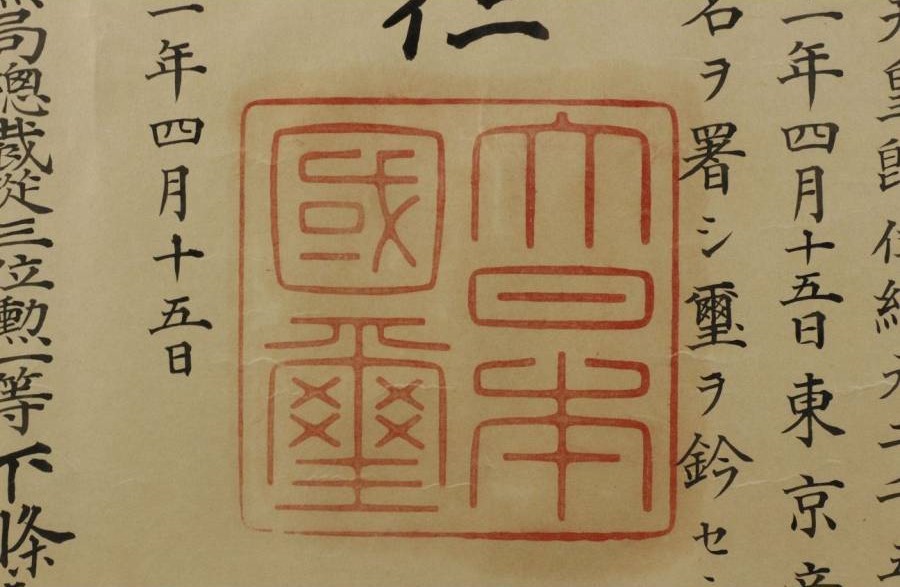 天皇卽位紀元二千五
一年四月十五日東京
名ヲ署シ璽ヲ鈐セシ
仁
大日本國璽
一年四月十五日
局總裁從三位勳一等下條